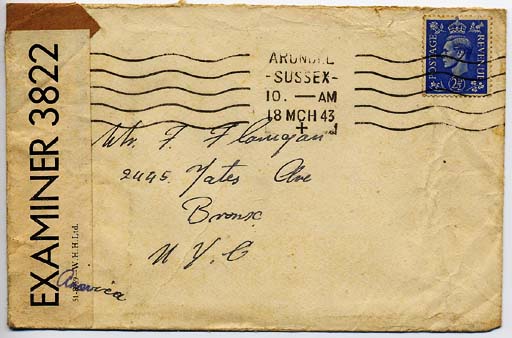 EXAMINER 3822
ARUNDEL
-SUSSEX-
10. — AM
18 MCH 43
POSTAGE
REVENUE
2½D
Mr. F. Flanigan
2495 Yates Ave
Bronx
N. Y. C
America
W.H.H.Ltd.